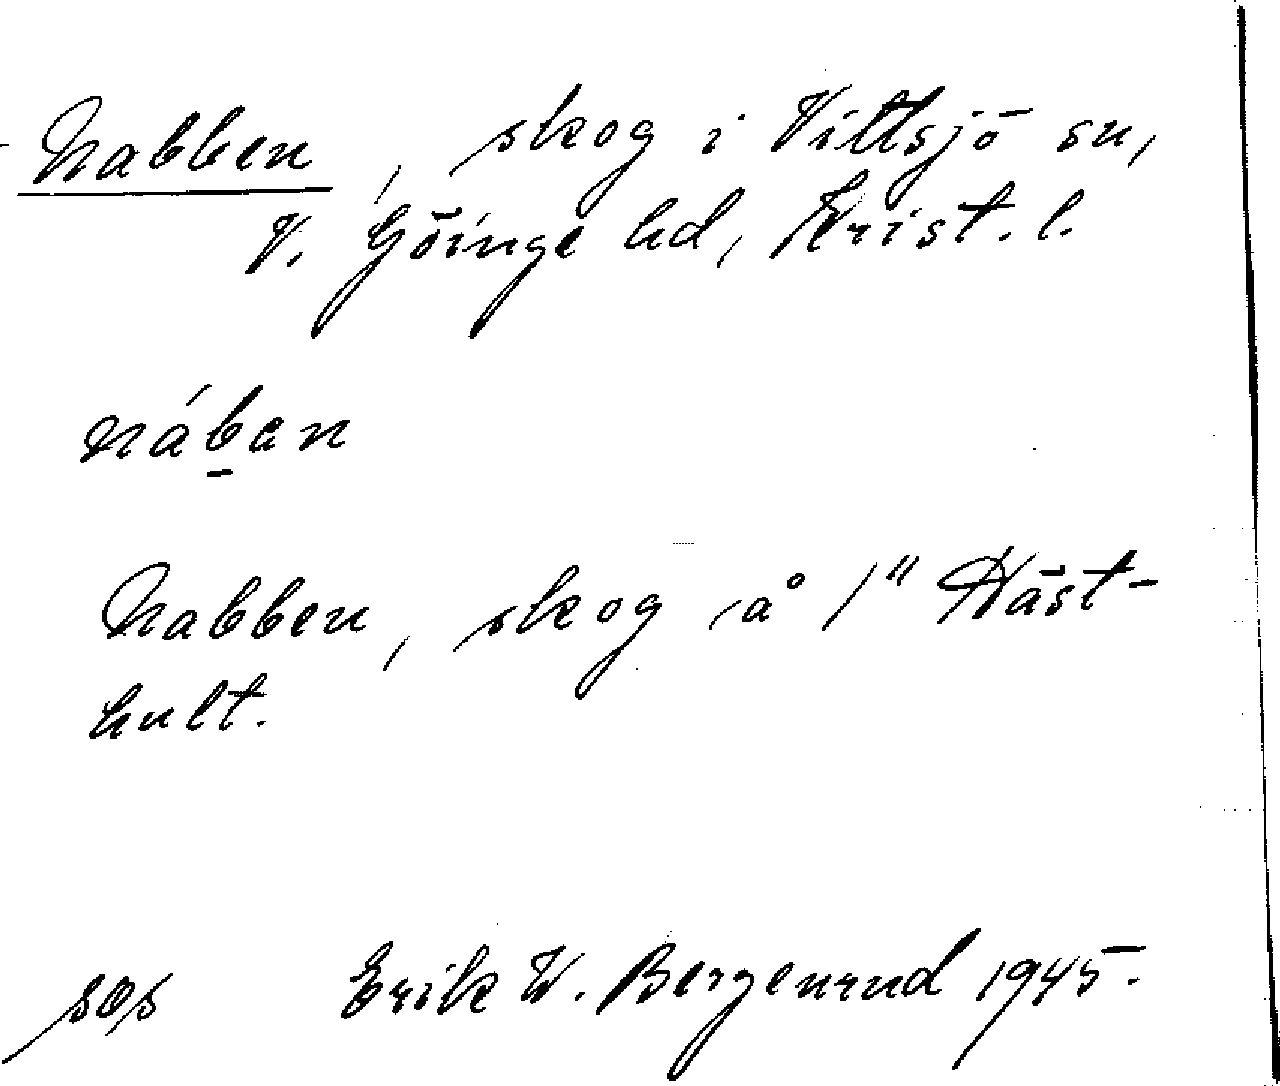 Nabben, skog i Vittsjö sn,
V. Göinge hd, Krist. l.
náb̠an
Nabben, skog å 1" Häst-
hult.
Erik W. Bergenrud 1945.